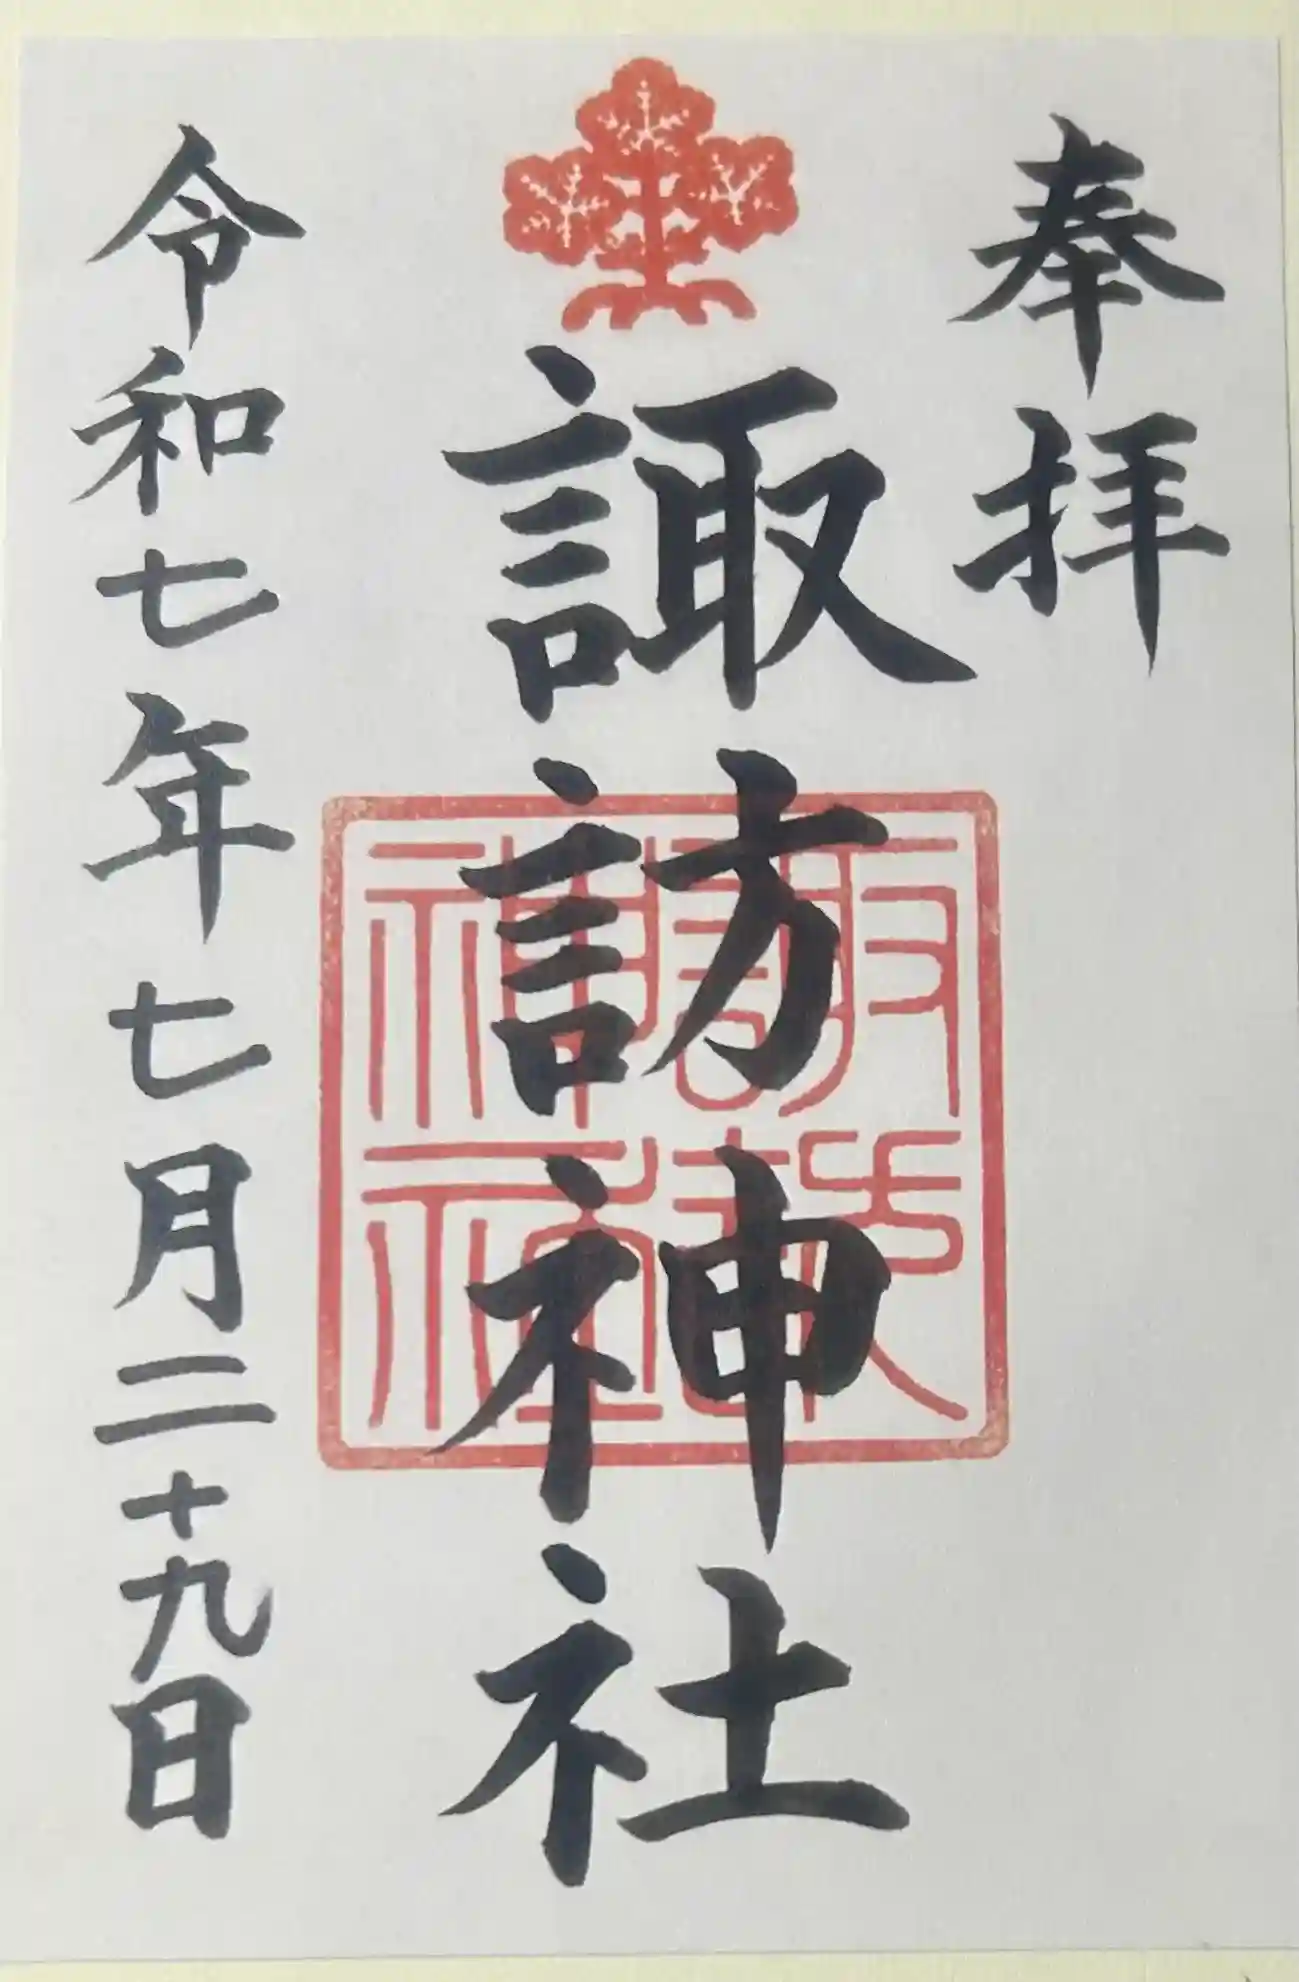 奉拝
諏訪神社
諏訪神社
令和七年七月二十九日